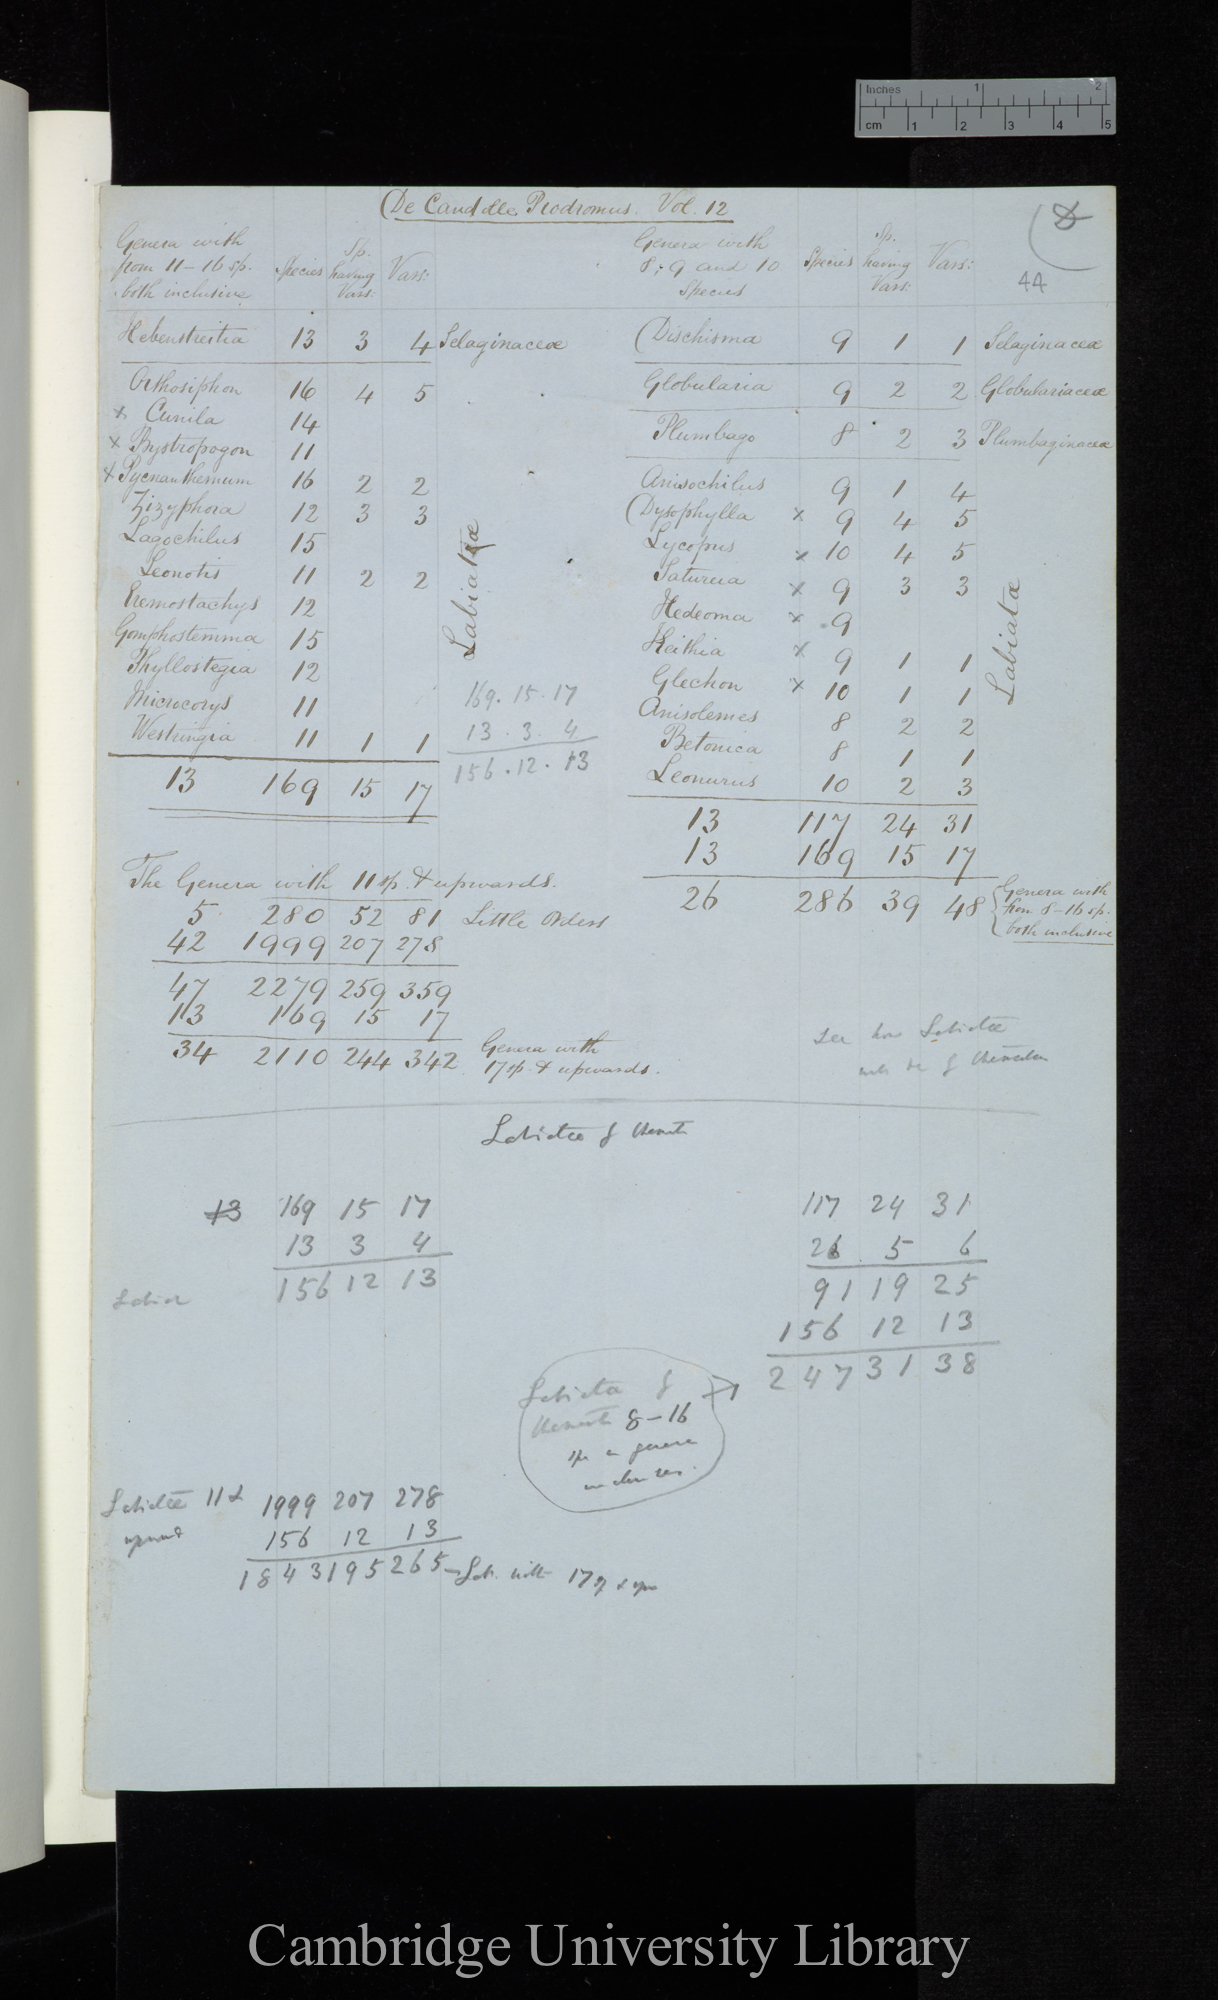 Inches 1 2
cm 1 2 3 4 5
De Candolle Prodromus. Vol. 12
8
44
Genera with from 11-16 sp. both inclusive Species Sp. having Vars: Vars:
Hebenstreitia 13 3 4 Selaginaceæ
Orthosiphon 16 4 5
x Cunila 14
x Bystropogon 11
x Pycnanthemum 16 2 2
Zizyphora 12 3 3
Lagochilus 15
Leonotis 11 2 2
Eremostachys 12
Gomphostemma 15
Phyllostegia 12
Microcorys 11
Westringia 11 1 1
Labiatæ
13 169 15 17
169. 15. 17
13. 3. 4
156. 12. 13
Genera with 8, 9 and 10 Species Species Sp. having Vars: Vars:
(Dischisma 9 1 1 Selaginaceæ
Globularia 9 2 2 Globulariaceæ
Plumbago 8 2 3 Plumbaginaceæ
Anisochilus 9 1 4
(Dysophylla x 9 4 5
Lycopus x 10 4 5
Satureia x 9 3 3
Hedeoma x 9
Keithia x 9 1 1
Glechon x 10 1 1
Anisolemes 8 2 2
Betonica 8 1 1
Leonurus 10 2 3
Labiatæ
13 117 24 31
13 169 15 17
26 286 39 48 Genera with from 8-16 sp. both inclusive
The Genera with 11 sp. & upwards.
5 280 52 81 Little Orders
42 1999 207 278
47 2279 259 359
13 169 15 17
34 2110 244 342 Genera with 17 sp. & upwards.
see how Labiatæ
Labiatæ
13 169 15 17
13 3 4
156 12 13
Labiat
117 24 31
26 5 6
91 19 25
156 12 13
247 31 38
Labiatæ
8-16
genera
Labiatæ 11 &
upward
1999 207 278
156 12 13
1843 195 265 - Lab. with 17
Cambridge University Library